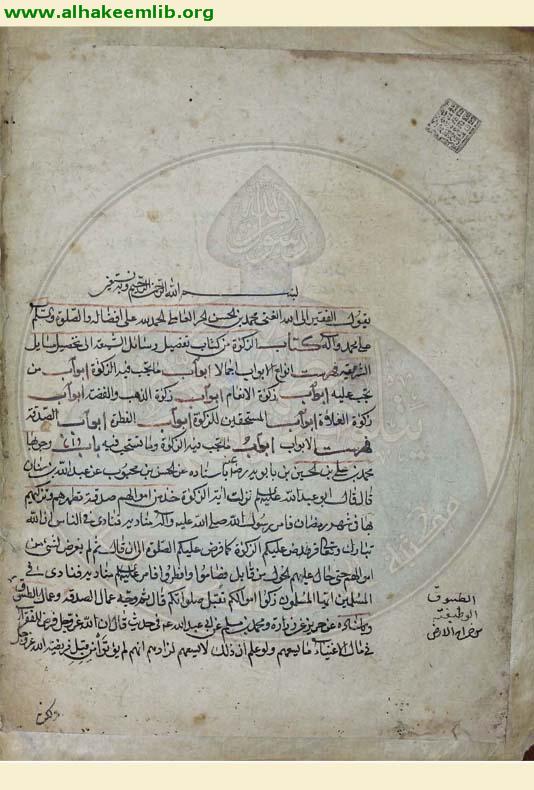 www.alhakeemlib.org
بسم الله الرحمن الرحيم وبه نستعين
يقول الفقير الى الله الغني محمد بن الحسن الحر العاملي الحمد لله على افضاله والصلوة والسلم
على محمد وآله كتاب الزكوة من كتاب تفصيل وسائل الشيعة الى تحصيل مسايل
الشريعة فهرست انواع الابواب اجمالا ابواب ما تجب فيه الزكوة ابواب من
تجب عليه ابواب زكوة الانعام ابواب زكوة الذهب والفضة ابواب
زكوة الغلاة ابواب المستحقين للزكوة ابواب الفطرة ابواب الصدقة
فهرست الابواب ابواب ما تجب فيه الزكوة وما تستحب فيه باب وجوبها
محمد بن علي بن الحسين بن بابويه رضي الله عنه باسناده عن الحسن بن محبوب عن عبد الله بن سنان
قال قال ابو عبد الله عليه السلم نزلت آية الزكوة خذ من اموالهم صدقة تطهرهم وتزكيهم
بها في شهر رمضان فامر رسول الله صلى الله عليه وآله مناديه فنادى في الناس ان الله
تبارك وتعالى قد فرض عليكم الزكوة كما فرض عليكم الصلوة الى ان قال ثم لم يعرض لشئ من
اموالهم حتى حال عليهم الحول من قابل فصاموا وافطروا فامر عليه السلم مناديه فنادى في
المسلمين ايها المسلمون زكوا اموالكم تقبل صلوتكم قال ثم وجه عمال الصدقة وعمال الطسوق
وباسناده عن حريز عن زرارة ومحمد بن مسلم عن ابي عبد الله ع في حديث قال ان الله عز وجل فرض للفقراء
في مال الاغنياء ما يسعهم ولو علم ان ذلك لا يسعهم لزادهم انهم لم يؤتوا من قبل فريضة الله عز وجل
الطسوق
الوظيفة
من خراج الارض
ولكن